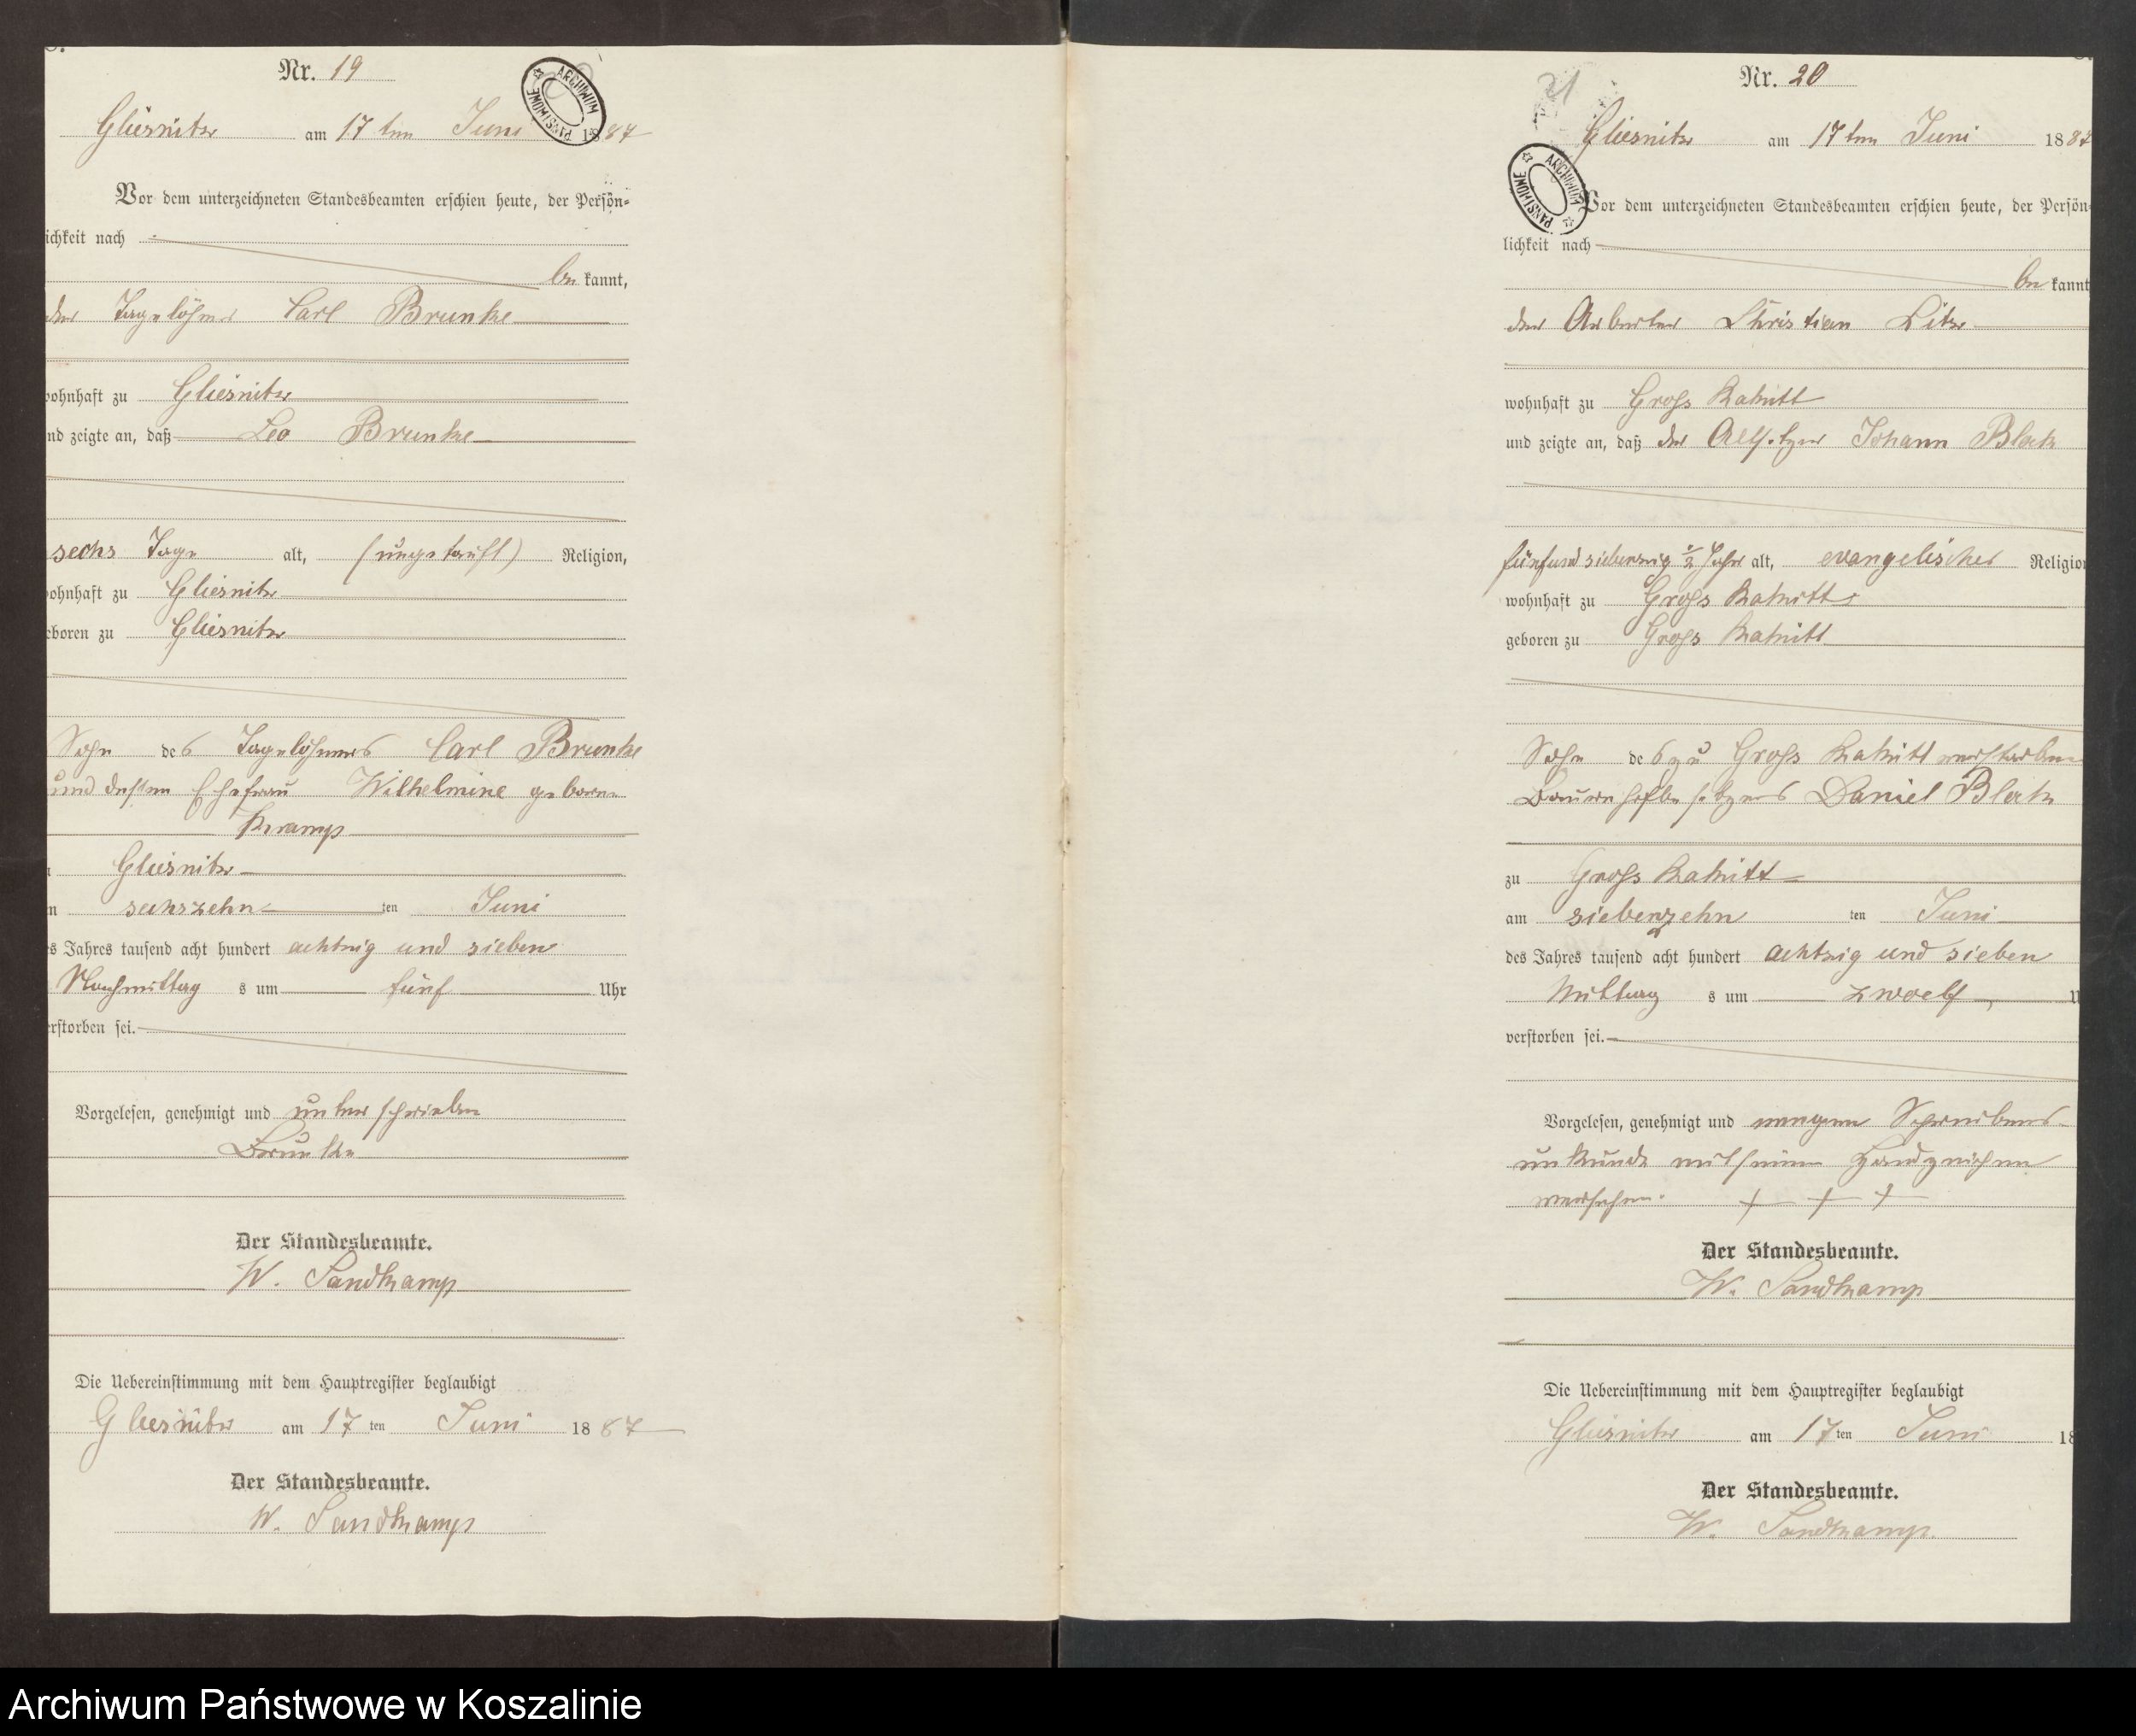 Nr. 19
Gliesnitz am 17ten Juni 1887
Vor dem unterzeichneten Standesbeamten erschien heute, der Persön-
ichkeit nach
be kannt,
der Tagelöhner Carl Brunke
wohnhaft zu Gliesnitz
nd zeigte an, daß Leo Brunke
sechs Tage alt, (ungetauft) Religion,
ohnhaft zu Gliesnitz
eboren zu Gliesnitz
Sohn des Tagelöhners Carl Brunke
und dessen Ehefrau Wilhelmine geborene
Kramp
Gliesnitz
sechszehn ten Juni
s Jahres tausend acht hundert achtzig und sieben
Nachmittag s um fünf Uhr
erstorben sei.
Vorgelesen, genehmigt und unterschrieben
Brunke
Der Standesbeamte.
W. Sandkamp
Die Uebereinstimmung mit dem Hauptregister beglaubigt
Gliesnitz am 17 ten Juni 1887
Der Standesbeamte.
W. Sandkamp
21
Nr. 20
Gliesnitz am 17ten Juni 1887
Vor dem unterzeichneten Standesbeamten erschien heute, der Persön
lichkeit nach
be kannt
der Arbeiter Christian Litz
wohnhaft zu Gross Rakitt
und zeigte an, daß der Altsitzer Johann Block
fünfundsiebenzig ½ Jahr alt, evangelischer Religion
wohnhaft zu Gross Rakitt
geboren zu Gross Rakitt
Sohn des zu Gross Rakitt verstorbenen
Bauernhofbesitzers Daniel Block
zu Gross Rakitt
am siebenzehn ten Juni
des Jahres tausend acht hundert achtzig und sieben
Mittag s um zwoelf U
verstorben sei.
Vorgelesen, genehmigt und wegen Schreibens-
unkunde mit seinem Handzeichen
versehen. + + +
Der Standesbeamte.
W. Sandkamp
Die Uebereinstimmung mit dem Hauptregister beglaubigt
Gliesnitz am 17 ten Juni 18
Der Standesbeamte.
W. Sandkamp.
Archiwum Państwowe w Koszalinie